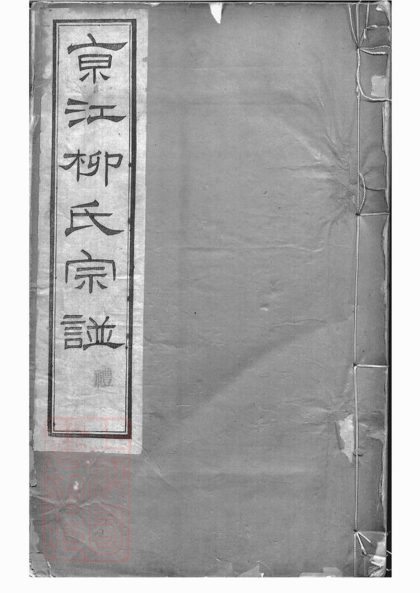 京江柳氏宗譜
禮